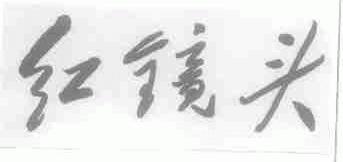 红镜头